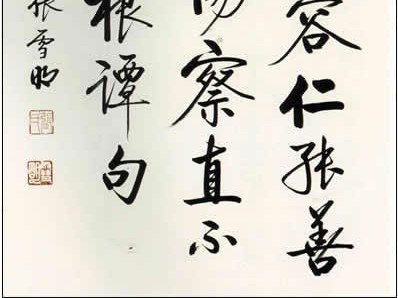 容仁能善
察直不
根谭句
张雪明